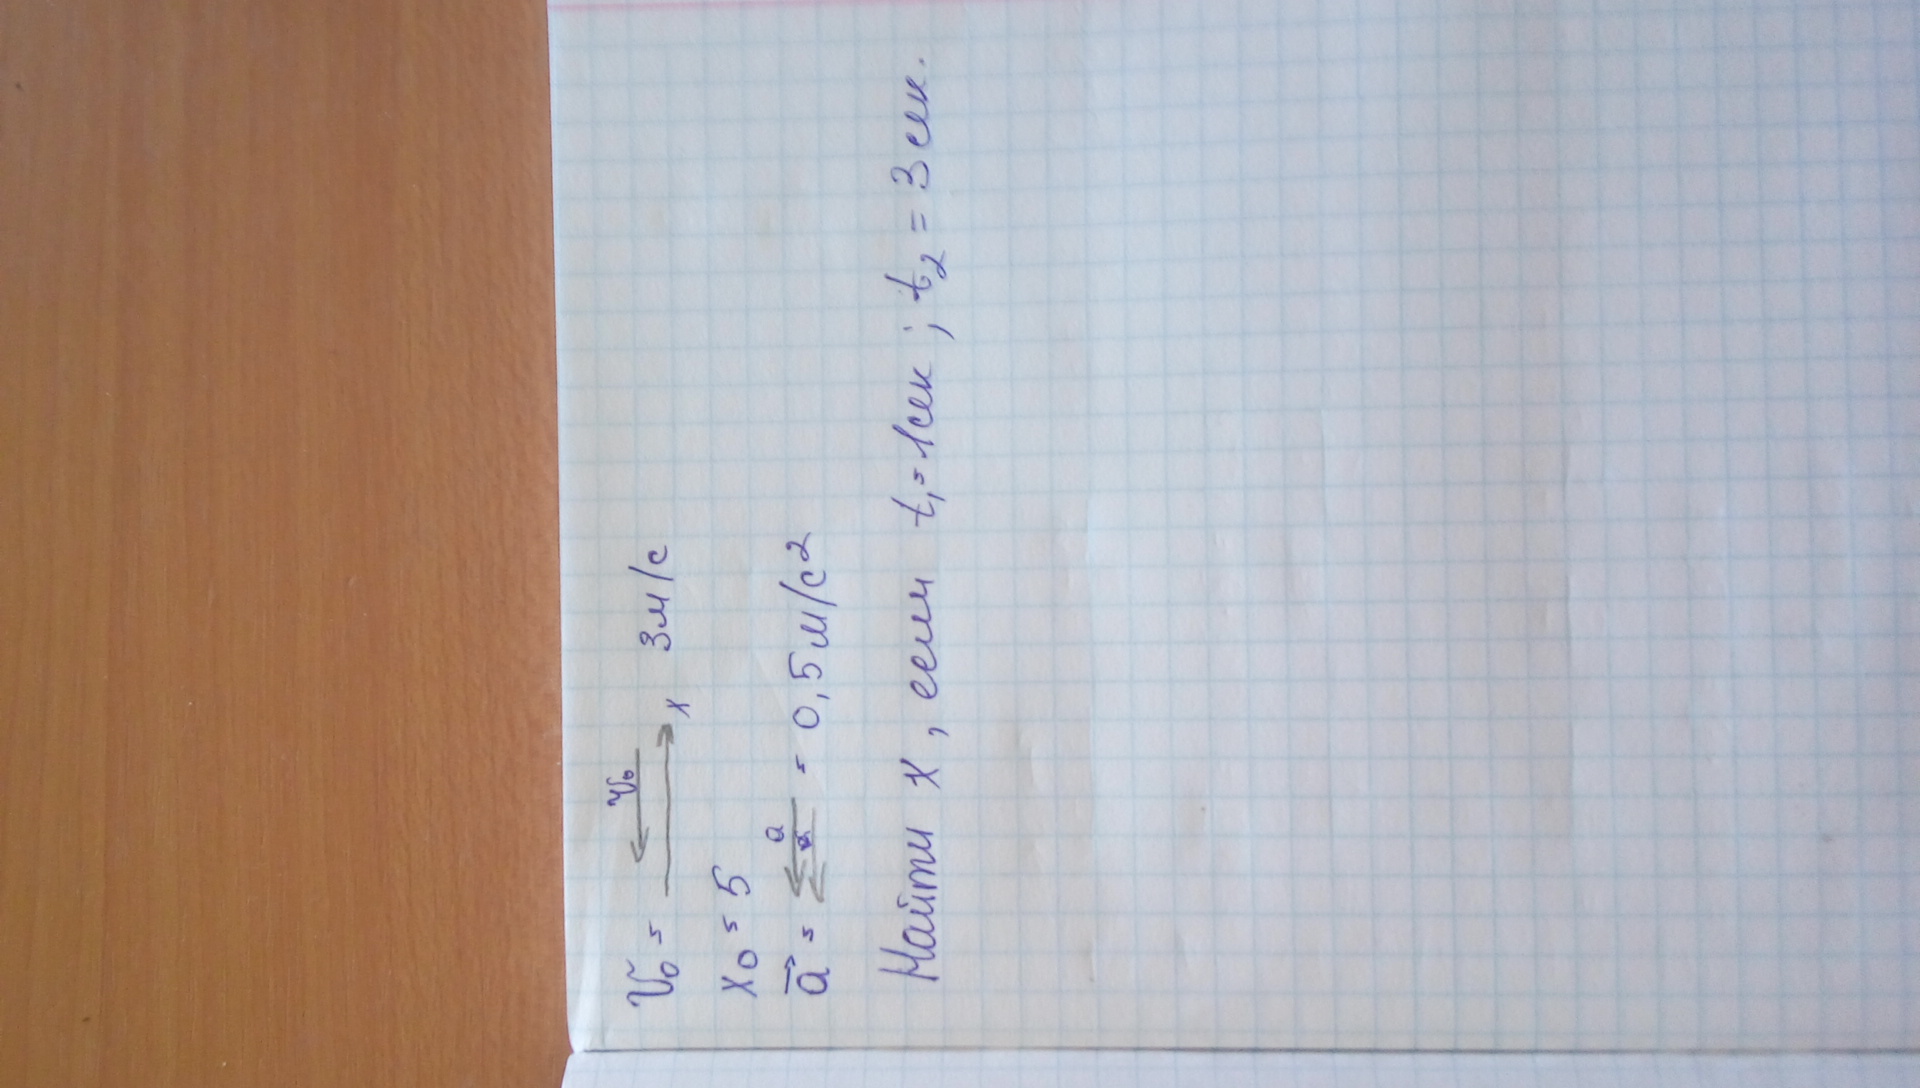 V₀ = V₀ x 3 м/с
x₀ = 5
a⃗ = a = 0,5 м/с²
Найти x, если t₁ = 1 сек; t₂ = 3 сек.